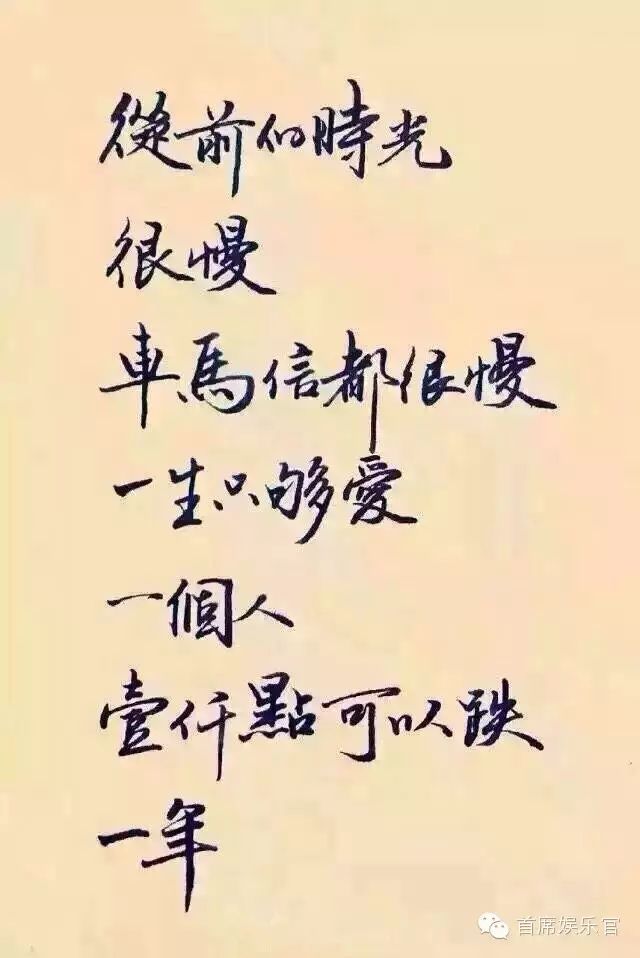 從前的時光
很慢
車馬信都很慢
一生只够愛
一個人
壹仟點可以跌
一年
首席娱乐官